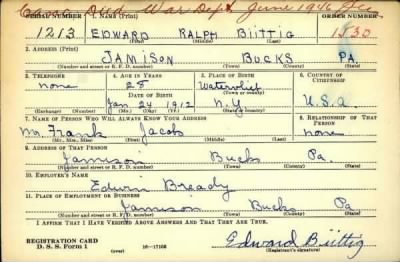 Canc Died War Dept June 1946
SERIAL NUMBER 1. NAME (Print) ORDER NUMBER
1213 EDWARD RALPH BIITTIG 1530
(First) (Middle) (Last)
2. ADDRESS (Print)
JAMISON BUCKS PA.
(Number and street or R. F. D. number) (Town) (County) (State)
3. TELEPHONE 4. AGE IN YEARS 5. PLACE OF BIRTH 6. COUNTRY OF CITIZENSHIP
none 28 Watervliet
DATE OF BIRTH (Town or county)
Jan 24 1912 N.Y U.S.A.
(Exchange) (Number) (Mo.) (Day) (Yr.) (State or country)
7. NAME OF PERSON WHO WILL ALWAYS KNOW YOUR ADDRESS 8. RELATIONSHIP OF THAT PERSON
Mr. Frank Jacob none
(Mr., Mrs., Miss) (First) (Middle) (Last)
9. ADDRESS OF THAT PERSON
Jamison Bucks Pa.
(Number and street or R. F. D. number) (Town) (County) (State)
10. EMPLOYER'S NAME
Edwin Bready
11. PLACE OF EMPLOYMENT OR BUSINESS
Jamison Bucks Pa
(Number and street or R. F. D. number) (Town) (County) (State)
I AFFIRM THAT I HAVE VERIFIED ABOVE ANSWERS AND THAT THEY ARE TRUE.
REGISTRATION CARD
D. S. S. Form 1 (over) 16-17105 Edward Biittig
(Registrant's signature)